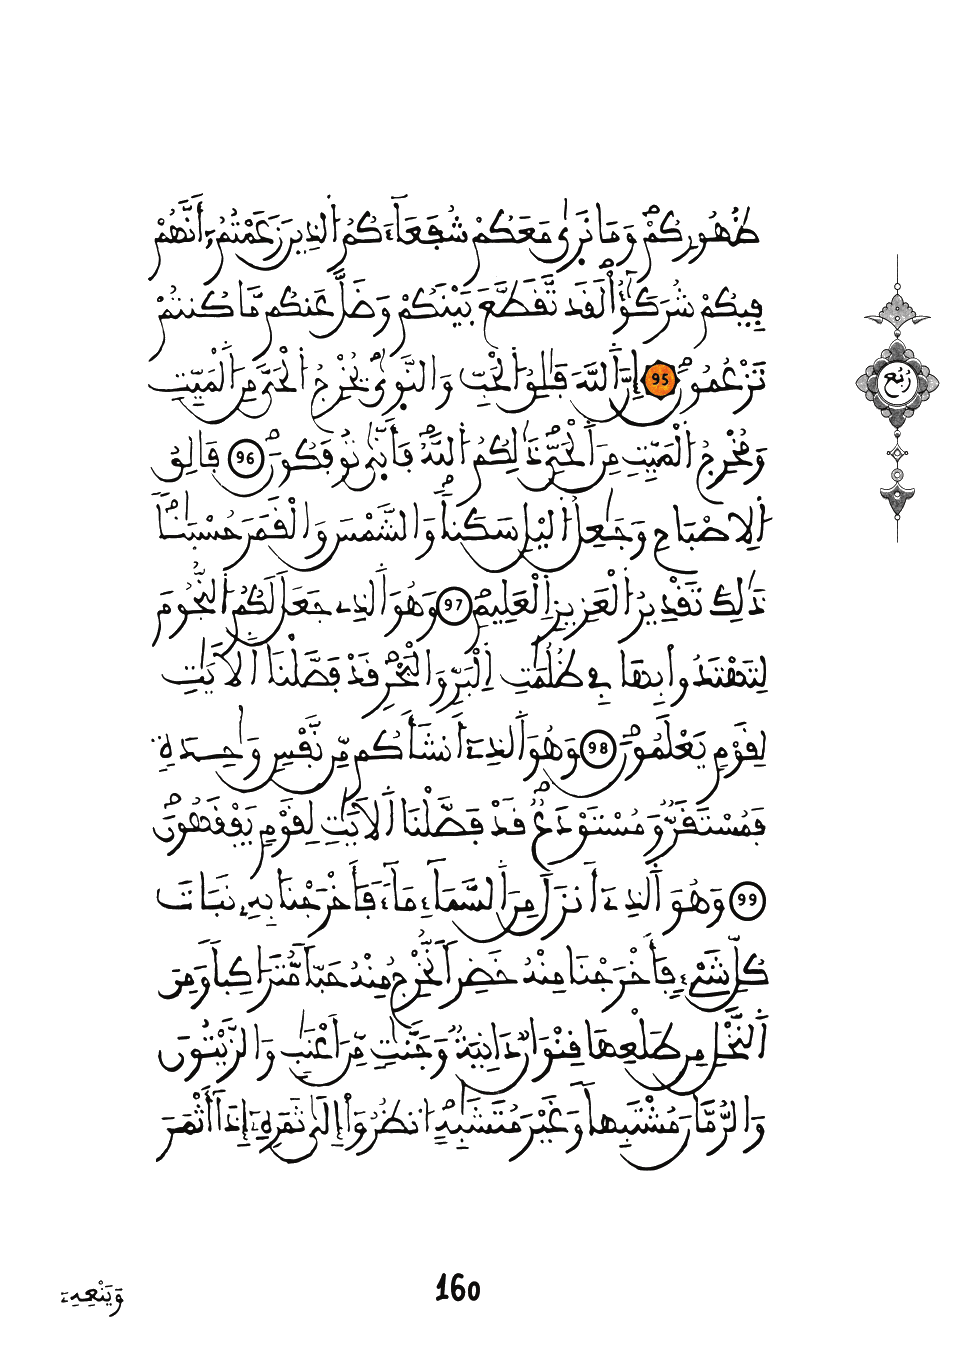 ظُهُورِكُمْ وَمَا نَرٜىٰ مَعَكُمْ شُفَعَآءَكُمُ اُ۬لذِينَ زَعَمْتُمُۥٓ أَنَّهُمْ
فِيكُمْ شُرَكَٰٓؤُاْ لَقَد تَّقَطَّعَ بَيْنَكُمْ وَضَلَّ عَنكُم مَّا كُنتُمْ
تَزْعُمُونَۖ 95 إِنَّ اَ۬للَّهَ فَٰلِقُ اُ۬لْحَبِّ وَالنَّو۪ىٰۖ يُخْرِجُ اُ۬لْحَيَّ مِنَ اَ۬لْمَيِّتِ
وَمُخْرِجُ اُ۬لْمَيِّتِ مِنَ اَ۬لْحَيِّۖ ذَٰلِكُمُ اُ۬للَّهُۖ فَأَنّ۪ىٰ تُوفَكُونَۖ 96 فَالِقُ
اُ۬لِاصْبَاحِ وَجَٰعِلُ اُ۬ليْلِ سَكَناٗۖ وَالشَّمْسَ وَالْقَمَرَ حُسْبَٰناٗۖ
ذَٰلِكَ تَقْدِيرُ اُ۬لْعَزِيزِ اِ۬لْعَلِيمِۖ 97 وَهُوَ اَ۬لذِے جَعَلَ لَكُمُ اُ۬لنُّجُومَ
لِتَهْتَدُواْ بِهَا فِے ظُلُمَٰتِ اِ۬لْبَرِّ وَالْبَحْرِۖ قَدْ فَصَّلْنَا اَ۬لَايَٰتِ
لِقَوْمٖ يَعْلَمُونَۖ 98 وَهُوَ اَ۬لذِےٓ أَنشَأَكُم مِّن نَّفْسٖ وَٰحِدَةٖ
فَمُسْتَقَرّٞ وَمُسْتَوْدَعٞۖ قَدْ فَصَّلْنَا اَ۬لَايَٰتِ لِقَوْمٖ يَفْقَهُونَۖ
99 وَهُوَ اَ۬لذِےٓ أَنزَلَ مِنَ اَ۬لسَّمَآءِ مَآءٗ فَأَخْرَجْنَا بِهِۦ نَبَاتَ
كُلِّ شَےْءٖ فَأَخْرَجْنَا مِنْهُ خَضِراٗ نُّخْرِجُ مِنْهُ حَبّاٗ مُّتَرَاكِباٗ وَمِنَ
اَ۬لنَّخْلِ مِن طَلْعِهَا قِنْوَانٞ دَانِيَةٞ وَجَنَّٰتٖ مِّنَ اَعْنَٰبٖ وَالزَّيْتُونَ
وَالرُّمَّانَ مُشْتَبِهاٗ وَغَيْرَ مُتَشَٰبِهٍۖ اِ۟نظُرُوٓاْ إِلَىٰ ثَمَرِهِۦٓ إِذَآ أَثْمَرَ
رُبُع
160
وَيَنْعِهِۦٓ